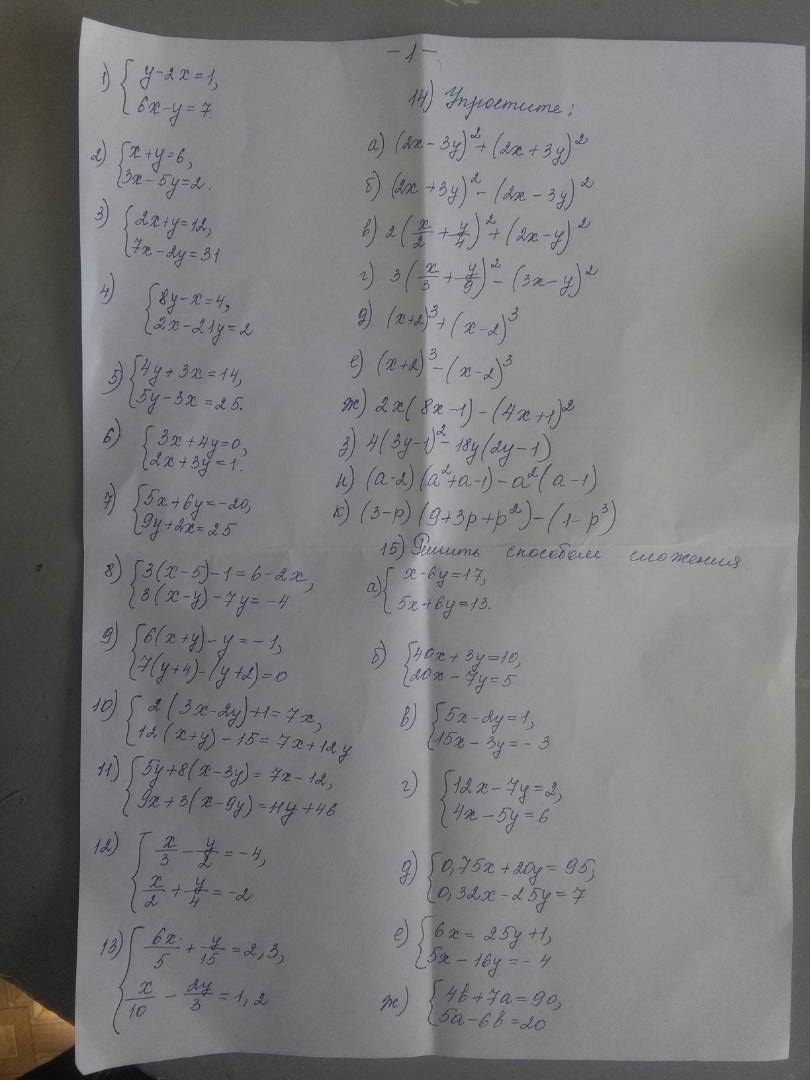 -1-
1) { y-2x=1,
6x-y=7.
2) { x+y=6,
3x-5y=2.
3) { 2x+y=12,
7x-2y=31
4) { 8y-x=4,
2x-21y=2
5) { 4y+3x=14,
5y-3x=25.
6) { 3x+4y=0,
2x+3y=1.
7) { 5x+6y=-20,
9y+2x=25
8) { 3(x-5)-1=6-2x,
3(x-y)-7y=-4
9) { 6(x+y)-y=-1,
7(y+4)-(y+2)=0
10) { 2(3x-2y)+1=7x,
12(x+y)-15=7x+12y
11) { 5y+8(x-3y)=7x-12,
9x+3(x-9y)=11y+46
12) { x/3 - y/2 = -4,
x/2 + y/4 = -2
13) { 6x/5 + y/15 = 2,3,
x/10 - 2y/3 = 1,2
14) Упростите:
а) (2x-3y)²+(2x+3y)²
б) (2x+3y)²-(2x-3y)²
в) 2(x/2 + y/4)²+(2x-y)²
г) 3(x/3 + y/9)²-(3x-y)²
д) (x+2)³+(x-2)³
е) (x+2)³-(x-2)³
ж) 2x(8x-1)-(4x+1)²
з) 4(3y-1)²-18y(2y-1)
и) (a-2)(a²+a-1)-a²(a-1)
к) (3-p)(9+3p+p²)-(1-p³)
15) Решить способом сложения.
а) { x-6y=17,
5x+6y=13.
б) { 40x+3y=10,
20x-7y=5
в) { 5x-2y=1,
15x-3y=-3
г) { 12x-7y=2,
4x-5y=6
д) { 0,75x+20y=95,
0,32x-25y=7
е) { 6x=25y+1,
5x-16y=-4
ж) { 4b+7a=90,
5a-6b=20